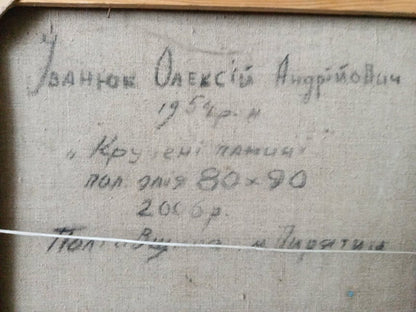 Іванюк Олексій Андрійович
1954 р.н
„Кручені паничі"
пол. олія 80×90
2006 р.
Полтавщина м Пирятин